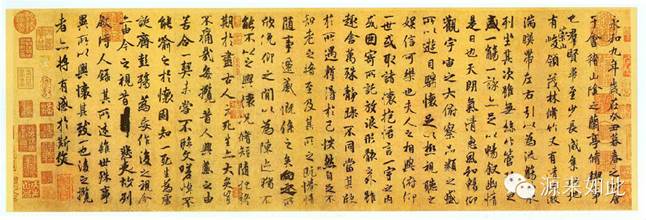 永和九年歲在癸丑暮春之初會
于會稽山陰之蘭亭脩禊事
也群賢畢至少長咸集此地
有崇山峻領茂林脩竹又有清流激
湍暎帶左右引以為流觴曲水
列坐其次雖無絲竹管弦之
盛一觴一詠亦足以暢敘幽情
是日也天朗氣清惠風和暢仰
觀宇宙之大俯察品類之盛
所以遊目騁懷足以極視聽之
娛信可樂也夫人之相與俯仰
一世或取諸懷抱悟言一室之內
或因寄所託放浪形骸之外雖
趣舍萬殊靜躁不同當其欣
於所遇暫得於己怏然自足不
知老之將至及其所之既惓情
隨事遷感慨係之矣向之所
欣俛仰之閒以為陳迹猶不
能不以之興懷況脩短隨化終
期於盡古人云死生亦大矣豈
不痛哉每攬昔人興感之由
若合一契未嘗不臨文嗟悼不
能喻之於懷固知一死生為虛
誕齊彭殤為妄作後之視今
亦由今之視昔悲夫故列
敘時人錄其所述雖世殊事
異所以興懷其致一也後之攬
者亦將有感於斯文
源来如此